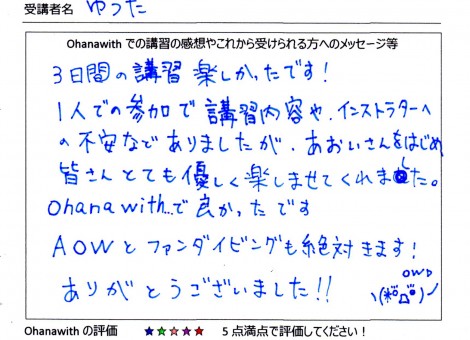 受講者名 ゆうた
Ohanawith での講習の感想やこれから受けられる方へのメッセージ等
3日間の講習 楽しかったです！
1人での参加で講習内容や、インストラクターへ
の不安などありましたが、あおいさんをはじめ
皆さんとても優しく楽しませてくれました。
Ohanawith…で良かったです
AOWとファンダイビングも絶対きます！
ありがとうございました！！
Ohanawith の評価 ★★★★★ 5点満点で評価してください！